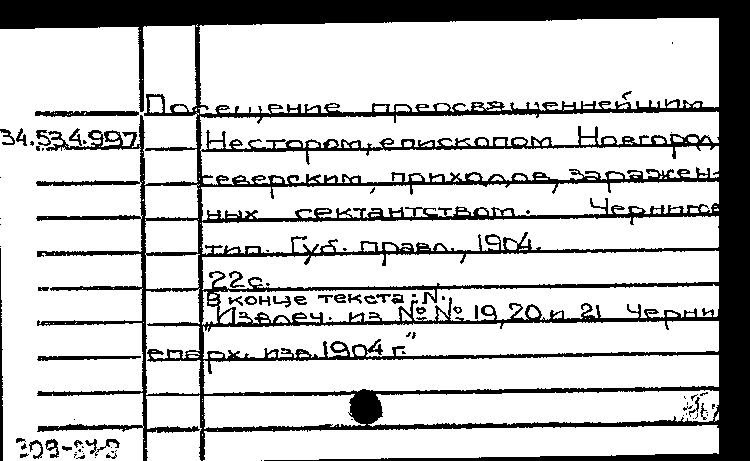 Посещение преосвященнейшим
34.534.997 Нестором, епископом Новгород-
северским, приходов, заражен-
ных сектантством. Чернигов
тип. Губ. правл., 1904.
22с.
В конце текста: N.
"Извлеч. из №№ 19, 20 и 21 Черни
епарх. изв. 1904 г."
309-87-8